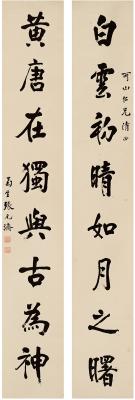 白雲初晴如月之曙
可山仁兄清正
黃唐在獨與古為神
菊生張元濟